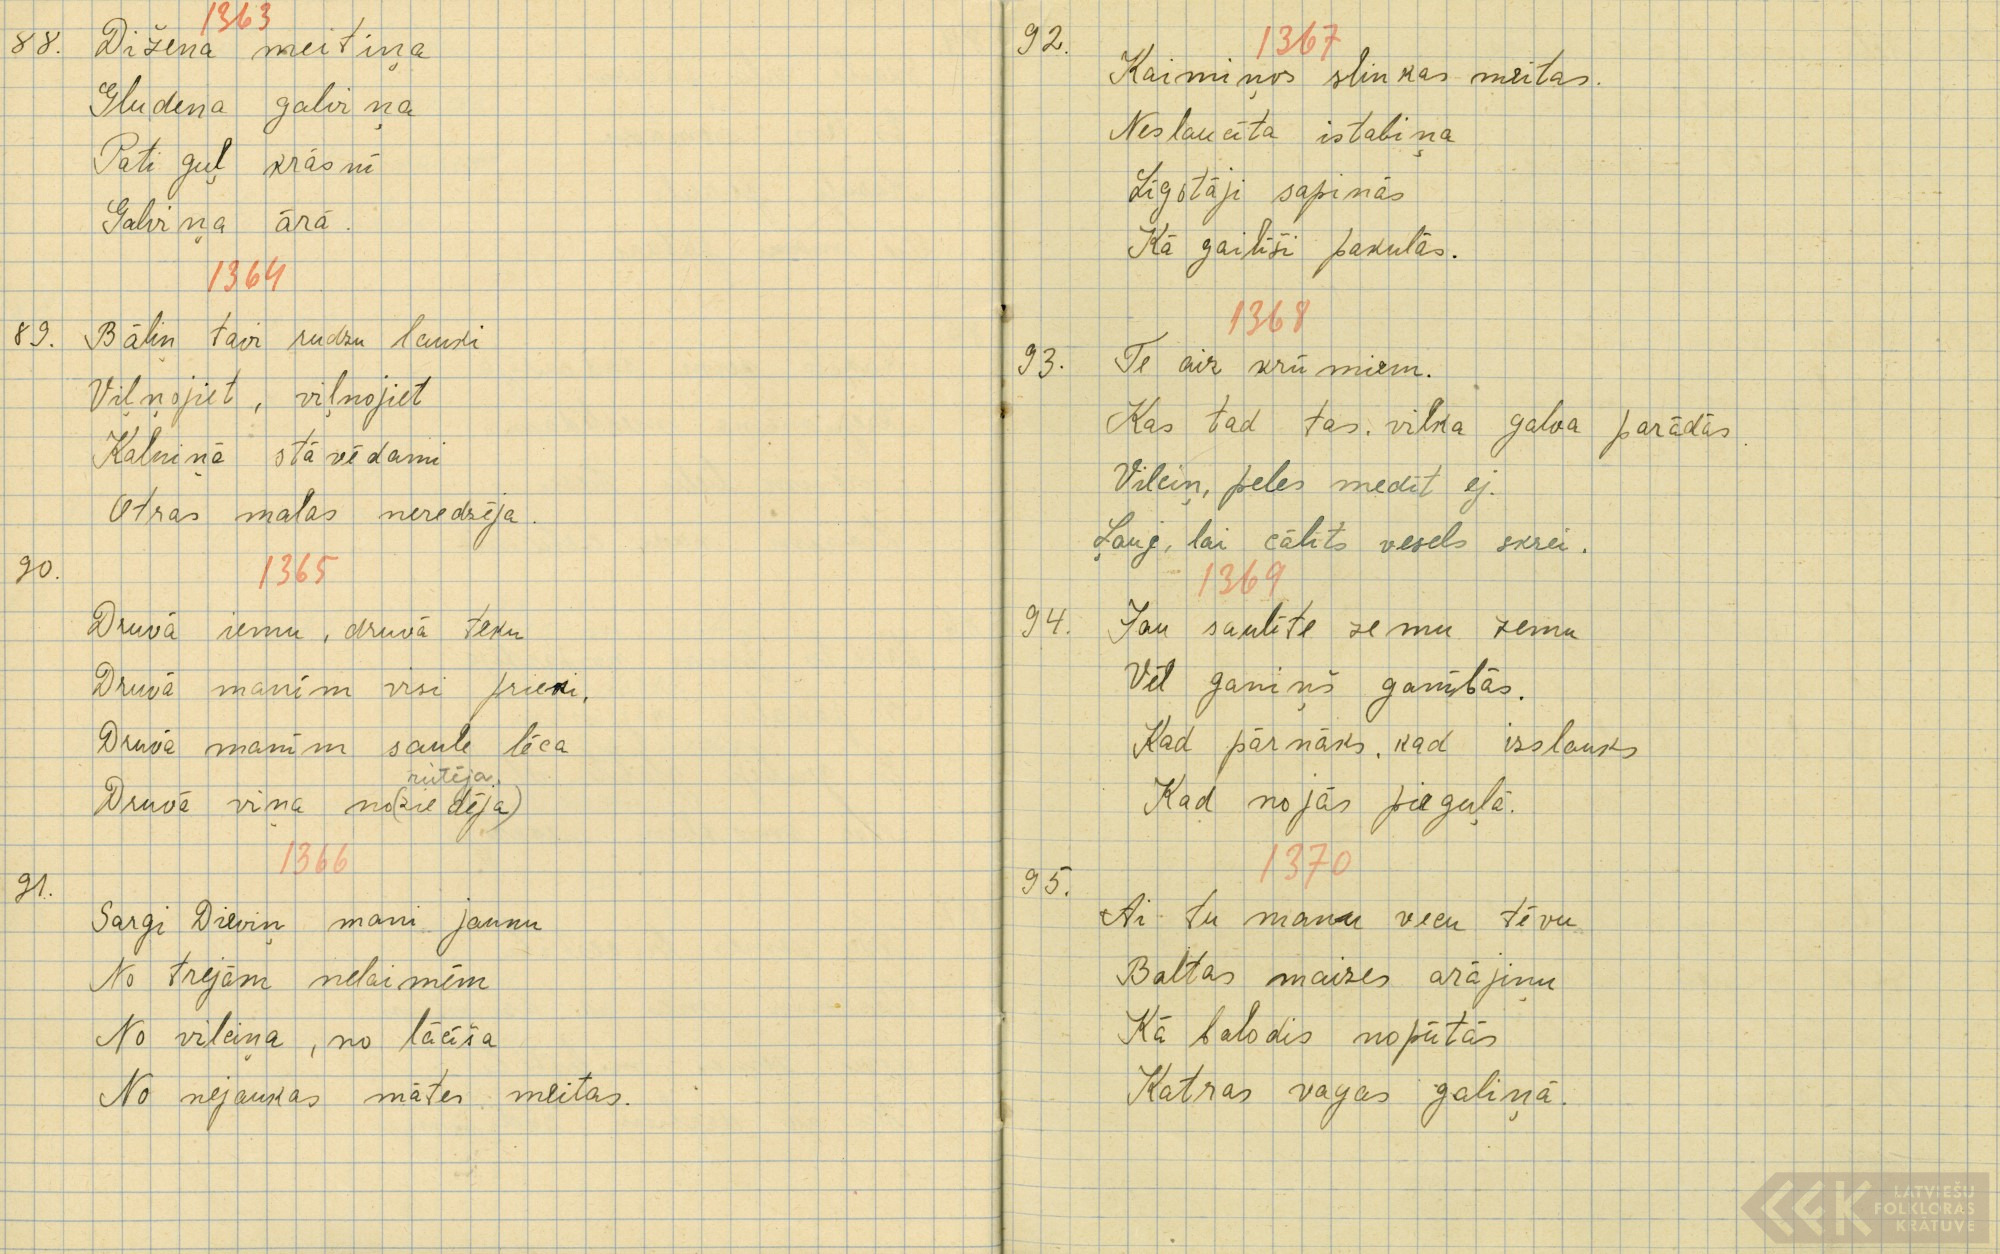 1363
88. Dižena meitiņa
Gludena galviņa
Pati guļ krāsnī
Galviņa ārā.
1364
89. Bāliņ tavi rudzu lauki
Viļņojiet, viļnojiet
Kalniņā stāvēdami
Otras malas neredzēja.
90. 1365
Druvā iemu, druvā teku
Druvā manīm visi prieki,
Druvā manīm saule lēca
rietēja.
Druvā viņa no(ziedēja)
1366
91.
Sargi Dieviņ mani jaunu
No trejām nelaimēm
No vilciņa, no lācīša
No nejaukas mātes meitas.
92. 1367
Kaimiņos slinkas meitas.
Neslaucīta istabiņa
Līgotāji sapinās
Kā gailīši pakulās.
1368
93. Te aiz krūmiem.
Kas tad tas. vilka galva parādās.
Vilciņ, peles medīt ej.
Ļauj, lai cālīts vesels skrei.
1369
94. Jau saulīte zemu zemu
Vēl ganiņš ganībās.
Kad pārnāks, kad izslauks
Kad nojās pieguļā.
1370
95.
Ai tu manu vecu tēvu
Baltas maizes arājiņu
Kā balodis nopūtās
Katras vagas galiņā.
LATVIEŠU
FOLKLORAS
KRĀTUVE